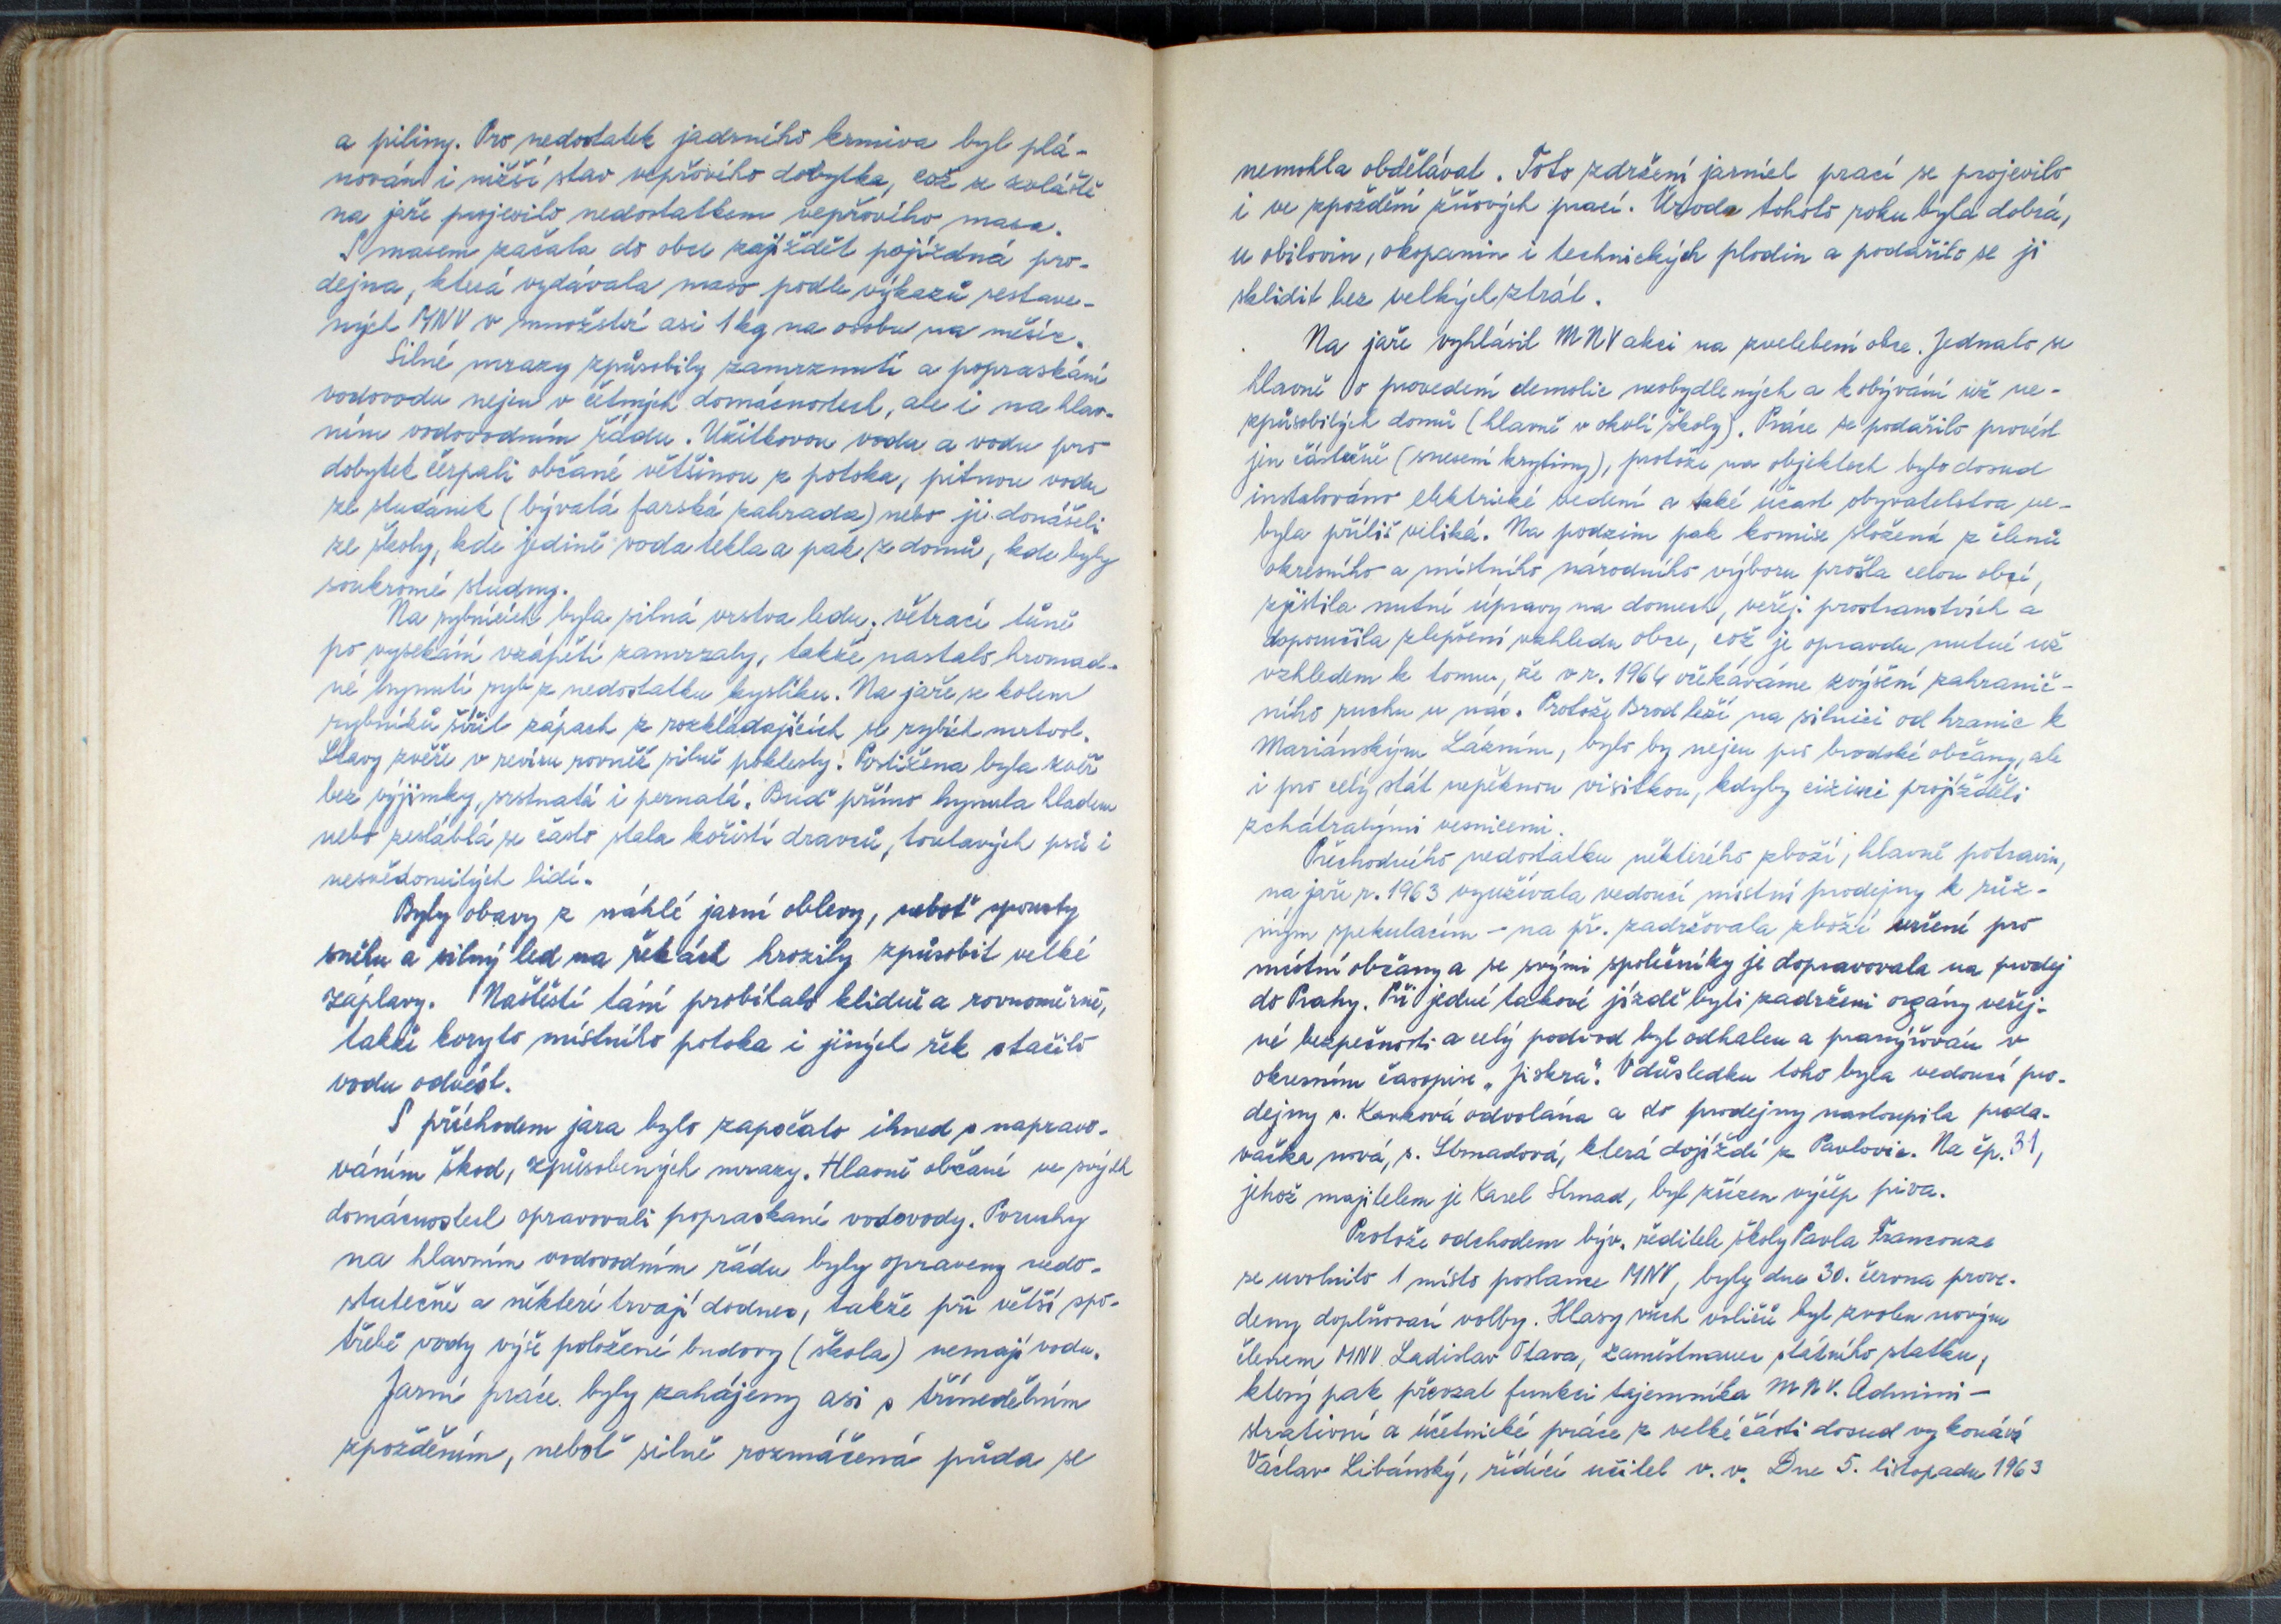 a piliny. Pro nedostatek jadrného krmiva byl plá-
nován i nižší stav vepřového dobytka, což se zvláště
na jaře projevilo nedostatkem vepřového masa.
S masem začala do obce zajíždět pojízdná pro-
dejna, která vydávala maso podle výkazů sestave-
ných MNV v množství asi 1 kg na osobu na měsíc.
Silné mrazy způsobily zamrznutí a popraskání
vodovodu nejen v četných domácnostech, ale i na hlav-
ním vodovodním řádu. Užitkovou vodu a vodu pro
dobytek čerpali občané většinou z potoka, pitnou vodu
ze studánek (bývalá farská zahrada) nebo ji donášeli
ze školy, kde jedině voda tekla a pak z domů, kde byly
soukromé studny.
Na rybnících byla silná vrstva ledu, větrací tůně
po vysekání vzápětí zamrzaly, takže nastalo hromad-
né hynutí ryb z nedostatku kyslíku. Na jaře se kolem
rybníků šířil zápach z rozkládajících se rybích mrtvol.
Stavy zvěře v revíru rovněž silně poklesly. Postižena byla zvěř
bez výjimky, srstnatá i pernatá. Buď přímo hynula hladem
nebo zesláblá se často stala kořistí dravců, toulavých psů i
nesvědomitých lidí.
Byly obavy z náhlé jarní oblevy, neboť spousty
sněhu a silný led na řekách hrozily způsobit velké
záplavy. Naštěstí tání probíhalo klidně a rovnoměrně,
takže koryto místního potoka i jiných řek stačilo
vodu odvést.
S příchodem jara bylo započato ihned s napravo-
váním škod, způsobených mrazy. Hlavně občané ve svých
domácnostech opravovali popraskané vodovody. Poruchy
na hlavním vodovodním řádu byly opraveny nedo-
statečně a některé trvají dodnes, takže při větší spo-
třebě vody výše položené budovy (škola) nemají vodu.
Jarní práce byly zahájeny asi s třínedělním
zpožděním, neboť silně rozmáčená půda se
nemohla obdělávat. Toto zdržení jarních prací se projevilo
i ve zpoždění žňových prací. Úroda tohoto roku byla dobrá,
u obilovin, okopanin i technických plodin a podařilo se ji
sklidit bez velkých ztrát.
Na jaře vyhlásil MNV akci na zvelebení obce. Jednalo se
hlavně o provedení demolic neobydlených a k obývání už ne-
způsobilých domů (hlavně v okolí školy). Práce se podařilo provést
jen částečně (snesení krytiny), protože na objektech bylo dosud
instalováno elektrické vedení a také účast obyvatelstva ne-
byla příliš veliká. Na podzim pak komise složená z členů
okresního a místního národního výboru prošla celou obcí,
zjistila nutné úpravy na domech, veřej. prostranstvích a
doporučila zlepšení vzhledu obce, což je opravdu nutné už
vzhledem k tomu, že v r. 1964 očekáváme zvýšení zahranič-
ního ruchu u nás. Protože Brod leží na silnici od hranic k
Mariánským Lázním, bylo by nejen pro brodské občany, ale
i pro celý stát nepěknou visitkou, kdyby cizinci projížděli
zchátralými vesnicemi.
Přechodného nedostatku některého zboží, hlavně potravin,
na jaře r. 1963 využívala vedoucí místní prodejny k růz-
ným spekulacím - na př. zadržovala zboží určené pro
místní občany a se svými společníky je dopravovala na prodej
do Prahy. Při jedné takové jízdě byli zadrženi orgány veřej-
né bezpečnosti a celý podvod byl odhalen a pranýřován v
okresním časopise „Jiskra". V důsledku toho byla vedoucí pro-
dejny s. Kavková odvolána a do prodejny nastoupila proda-
vačka nová, s. Strnadová, která dojíždí z Pavlovic. Na čp. 31,
jehož majitelem je Karel Strnad, byl zřízen výčep piva.
Protože odchodem býv. ředitele školy Pavla Francouze
se uvolnilo 1 místo poslance MNV, byly dne 30. června prove-
deny doplňovací volby. Hlasy všech voličů byl zvolen novým
členem MNV Ladislav Otava, zaměstnanec státního statku,
který pak převzal funkci tajemníka MNV. Admini-
strativní a účetnické práce z velké části dosud vykonává
Václav Libánský, řídící učitel v. v. Dne 5. listopadu 1963